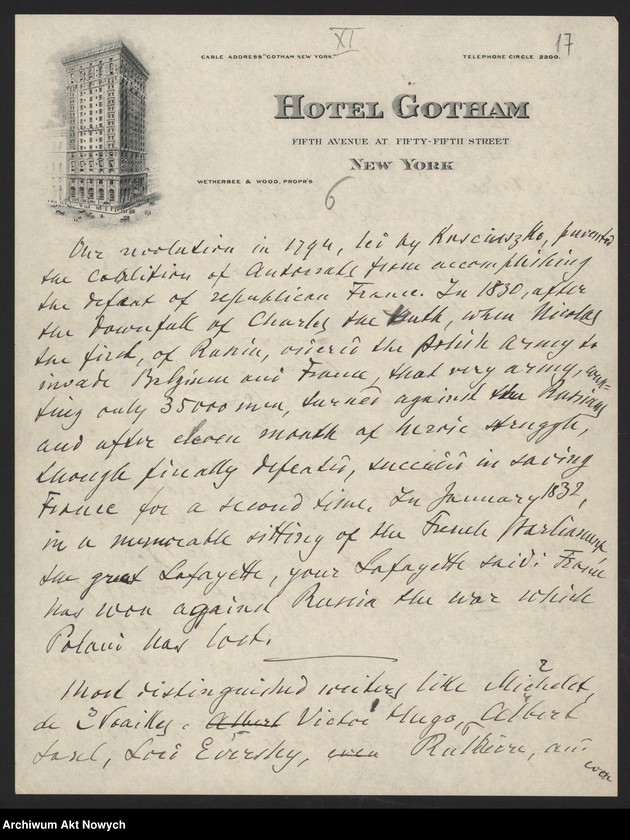 XI
17
CABLE ADDRESS "GOTHAM NEW YORK"
TELEPHONE CIRCLE 2200.
HOTEL GOTHAM
FIFTH AVENUE AT FIFTY-FIFTH STREET
NEW YORK
WETHERBEE & WOOD, PROPR'S
6
Our revolution in 1794, led by Kosciuszko, prevented
the coalition of Autocrats from accomplishing
the defeat of republican France. In 1830, after
the downfall of Charles the when Nicolas
the first, of Russia, ordered the Polish Army to
invade Belgium and France, that very army, coun-
ting only 35000 men, turned against the Russians
and after eleven month of heroic struggle,
though finally defeated, succeeded in saving
France for a second time. In January 1832,
in a memorable sitting of the French Parliament
the great Lafayette, your Lafayette said: France
has won against Russia the war which
Poland has lost.
Most distinguished writers like Michelet,
de Noailles, Albert Victor Hugo, Albert
Sorel, Lord Eversley, even Rulhière, and
even
Archiwum Akt Nowych